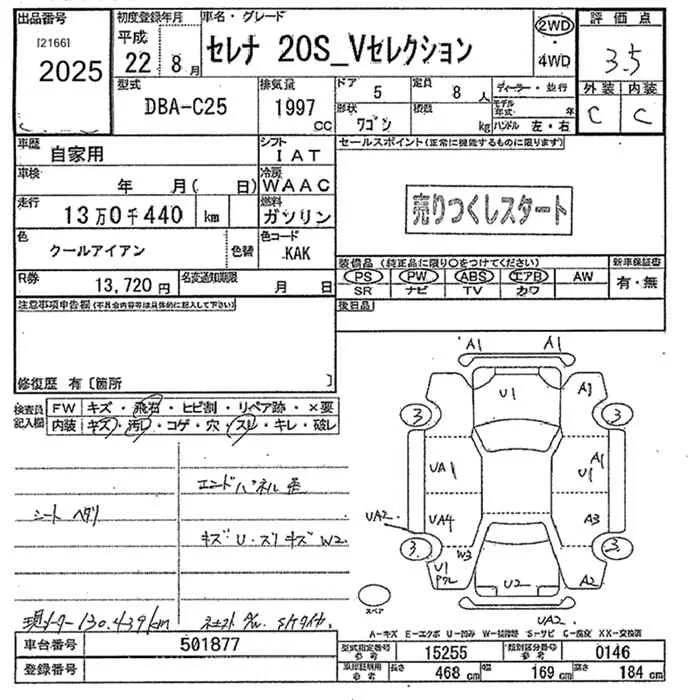 出品番号
I2166I
2025
初度登録年月
平成
22 8月
車名・グレード
セレナ 20S_Vセレクション
2WD
・
4WD
評価点
3.5
外装 内装
C C
型式
DBA-C25
排気量
1997
CC
ドア
5
定員
8 人
形状
ワゴン
積数
kg
ディーラー・並行
モデル年式 年
ハンドル 左・右
車歴
自家用
シフト
IAT
車検
年 月( 日)
冷房
WAAC
走行
13万0千440 km
燃料
ガソリン
色
クールアイアン
色替
色コード
KAK
R券
13,720円
名変通知期限
月 日
セールスポイント(正常に機能するものに限ります)
売りつくしスタート
装備品(純正品に限り○をつけてください)
新車保証書
PS PW ABS エアB AW
SR ナビ TV カワ
有・無
注意事項申告欄(不具合内容等は具体的に記入して下さい)
後日品
修復歴 有〔箇所 〕
検査員
記入欄
FW キズ・飛石・ヒビ割・リペア跡・×要
内装 キズ・汚レ・コゲ・穴・スレ・キレ・破レ
シートヘタリ
エンドパネル
キズU・スリキズW2
現メーター130.439km
A1 A1
U1 A1
3 3
UA1 A1
U1
UA2 UA4 A3
3 W3 3
U1 U2 A2
UA2
スペア
A-キズ E-エクボ U-凹み W-補修跡 S-サビ C-腐食 XX-交換済
車台番号
501877
登録番号
型式指定番号
参考
15255
類別区分番号
参考
0146
車庫証明用
参考
長さ
468 cm
幅
169 cm
高さ
184 cm